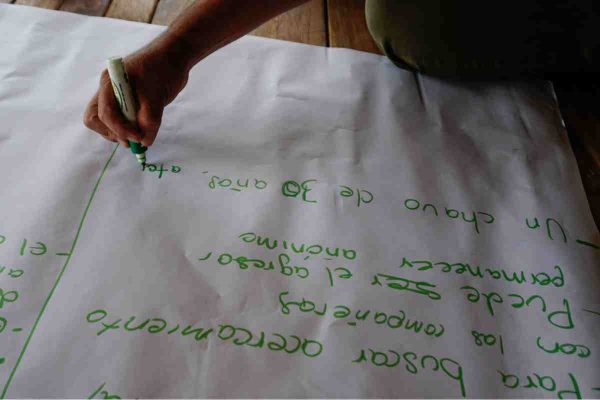 - Para buscar acercamiento
con las compañeras
- Puede ser el agresor
permanecer añónimo
- Un chavo de 30 años,
- El